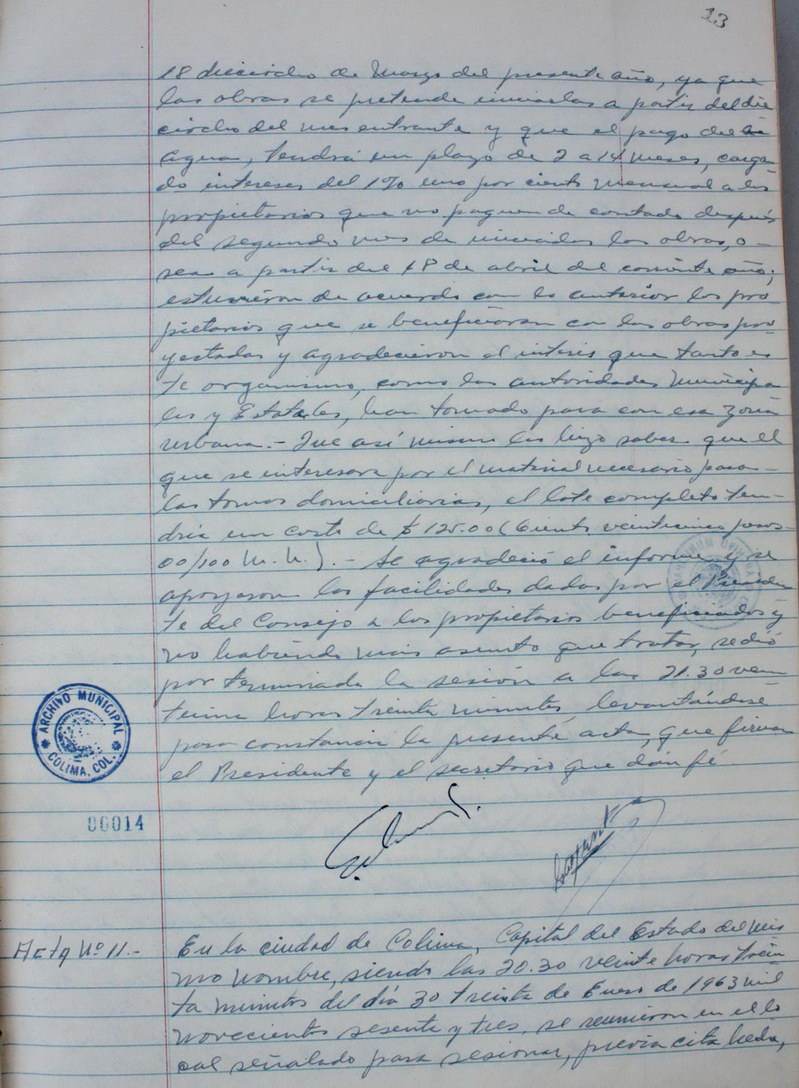 13
18 dieciocho de Marzo del presente año, ya que
las obras se pretende iniciarlas a partir del die
ciocho del mes entrante y que el pago del
agua, tendrá un plazo de 2 a 14 meses, cargan
do intereses del 1% uno por ciento mensual a los
propietarios que no paguen de contado después
del segundo mes de iniciadas las obras, o-
sea a partir del 18 de abril del corriente año;
estuvieron de acuerdo con lo anterior los pro
pietarios que se beneficiaran con las obras pro-
yectadas y agradecieron el interés que tanto es
te organismo, como las autoridades Municipa
les y Estatales, han tomado para con esa zona
urbana.- Que así mismo les hizo saber que el
que se interesara por el material necesario para-
las tomas domiciliarias, el lote completo ten-
dría un costo de $ 125.00 (Ciento veinticinco pesos-
00/100 M.N.).- Se agradeció el informe y se
apoyaron las facilidades dadas por el Presiden
te del Consejo a los propietarios beneficiados y
no habiendo más asunto que tratar, se dió
por terminada la sesión a las 21.30 vein
tiuna horas treinta minutos levantándose
para constancia la presente acta, que firman
el Presidente y el secretario que dan fé.
ARCHIVO MUNICIPAL
COLIMA, COL.
00014
Acta Nº 11.-
En la ciudad de Colima, Capital del Estado del mis
mo nombre, siendo las 20.30 veinte horas trein
ta minutos del día 30 treinta de Enero de 1963 mil
novecientos sesenta y tres, se reunieron en el lo
cal señalado para sesionar, previa cita hecha,